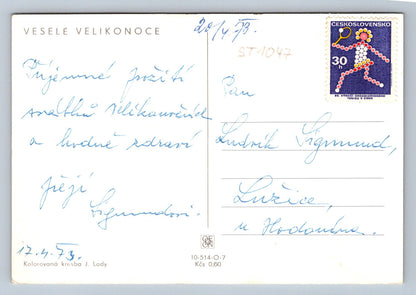 VESELE VELIKONOCE
20/4 73.
ST-1047
ČESKOSLOVENSKO
30 h
Příjemné prožití
svátků velikonočních
a hodně zdraví
přejí
Sigmundovi.
17.4.73.
Kolorovaná kresba J. Lady
10-514-O-7
Kčs 0,60
Pan
Ludvík Sigmund,
Lužice,
u Hodonína.